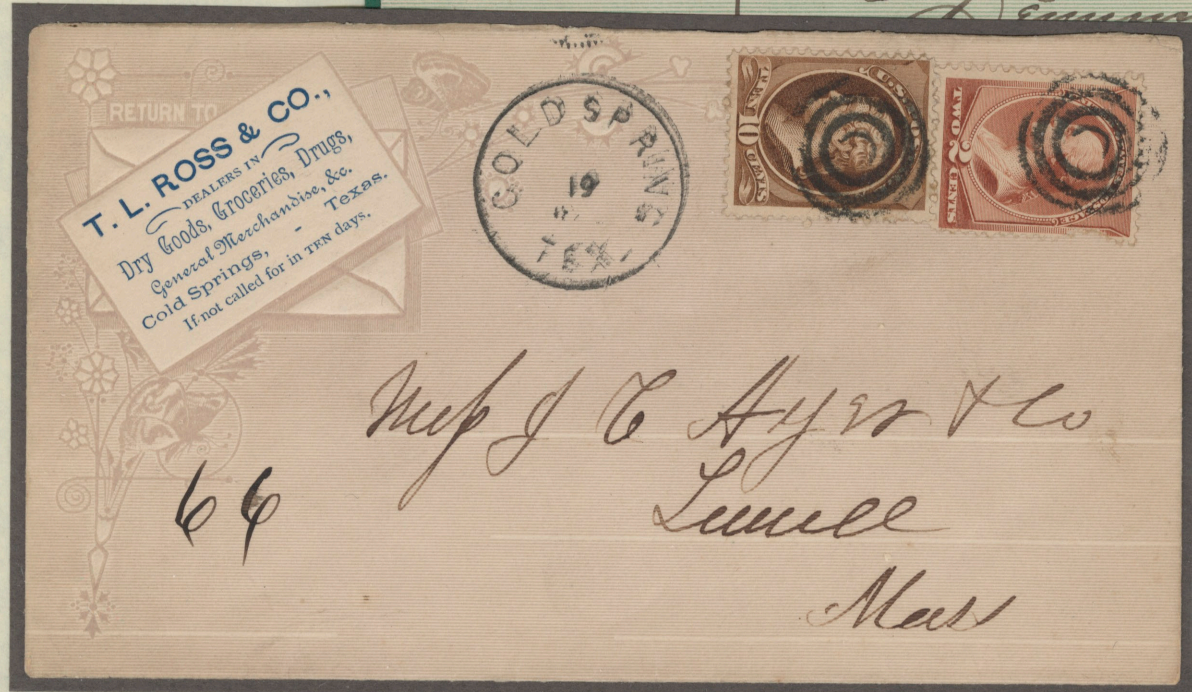 RETURN TO
T. L. ROSS & CO.,
DEALERS IN
Dry Goods, Groceries, Drugs,
General Merchandise, &c.
Cold Springs, - Texas.
If not called for in TEN days.
COLD SPRING
19
TEX.
U.S.
10
TWO
2
CENTS
Mess J C Ayer & Co
Lowell
Mass
66